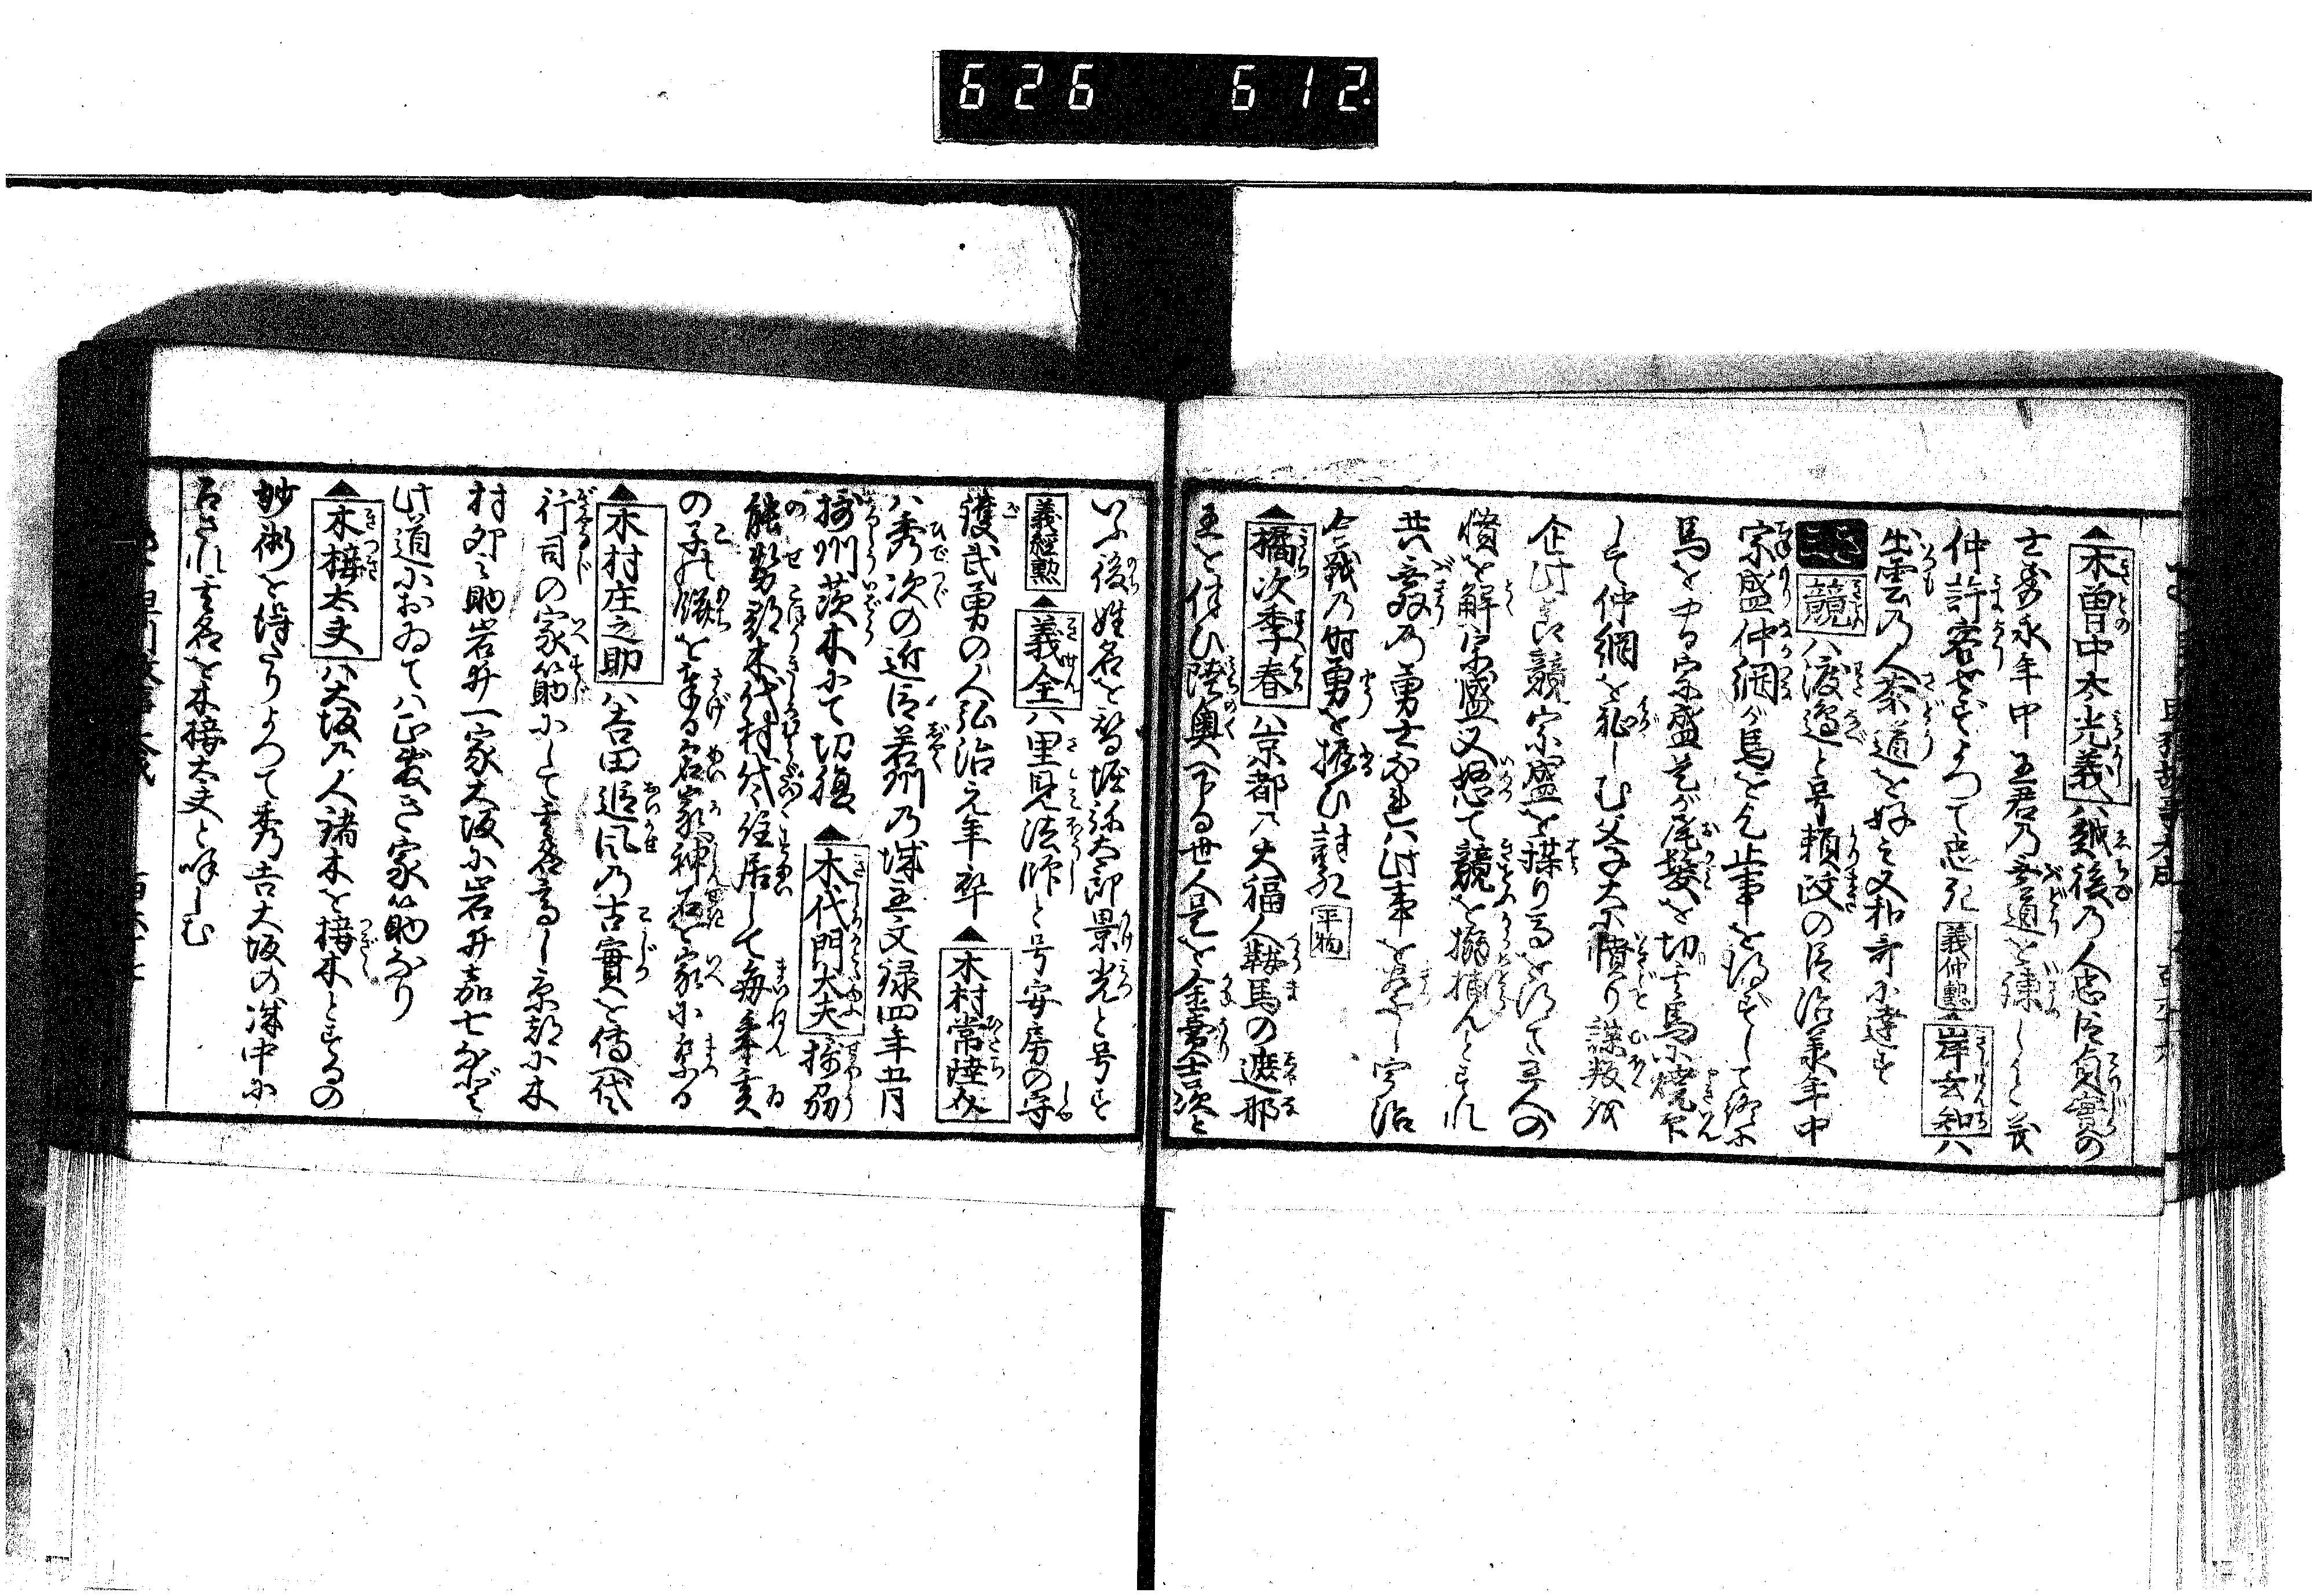 626 612
▲木曽中太光義ハ越後乃人忠臣貞實の
士寿永年中主君乃無道を諫しかと義
仲許容せざるよつて忠死 義仲勲 ▲岸玄知ハ
出雲乃人茶道を好ミ又和哥に達す
競ハ渡邉と号頼政の臣治承年中
宗盛仲綱が馬を乞止事を得ずして終に
馬をやる宗盛是が尾髪を切其馬に焼印
して仲綱と恥しむ父子大に憤り謀叛を
企此とき競宗盛を謀り馬を得て三人の
憤を解宗盛又怒て競を搦捕んとすれ
共豪乃勇士なれハ此事を
合戦乃時勇を振ひ討死 平物
▲橘次季春ハ京都乃大福人鞍馬の遮那
王を伴ひ陸奥へ下る世人是を金賣吉次と
いふ後姓名を 堀弥太郎景光と号す
義経勲 ▲義全ハ里見法師と号安房の守
護武勇の人弘治元年卒 ▲木村常陸介
ハ秀次の近臣若州乃城主文禄四年五月
摂州茨木にて切腹 ▲木代門大夫摂刕
能勢郡木代村に代々住居して毎年亥
の子の餅を奉る名家神石を家に祭る
▲木村庄之助ハ吉田追風乃古實を傳代々
行司の家筋にして其名高し京都に木
村夘之助岩井一家大坂に岩井嘉七など
此道においてハ正敷き家筋なり
▲木接太夫ハ大坂乃人諸木を接木とするの
妙術を得たりよつて秀吉大坂の城中に
召され其名を木接太夫と呼しむ